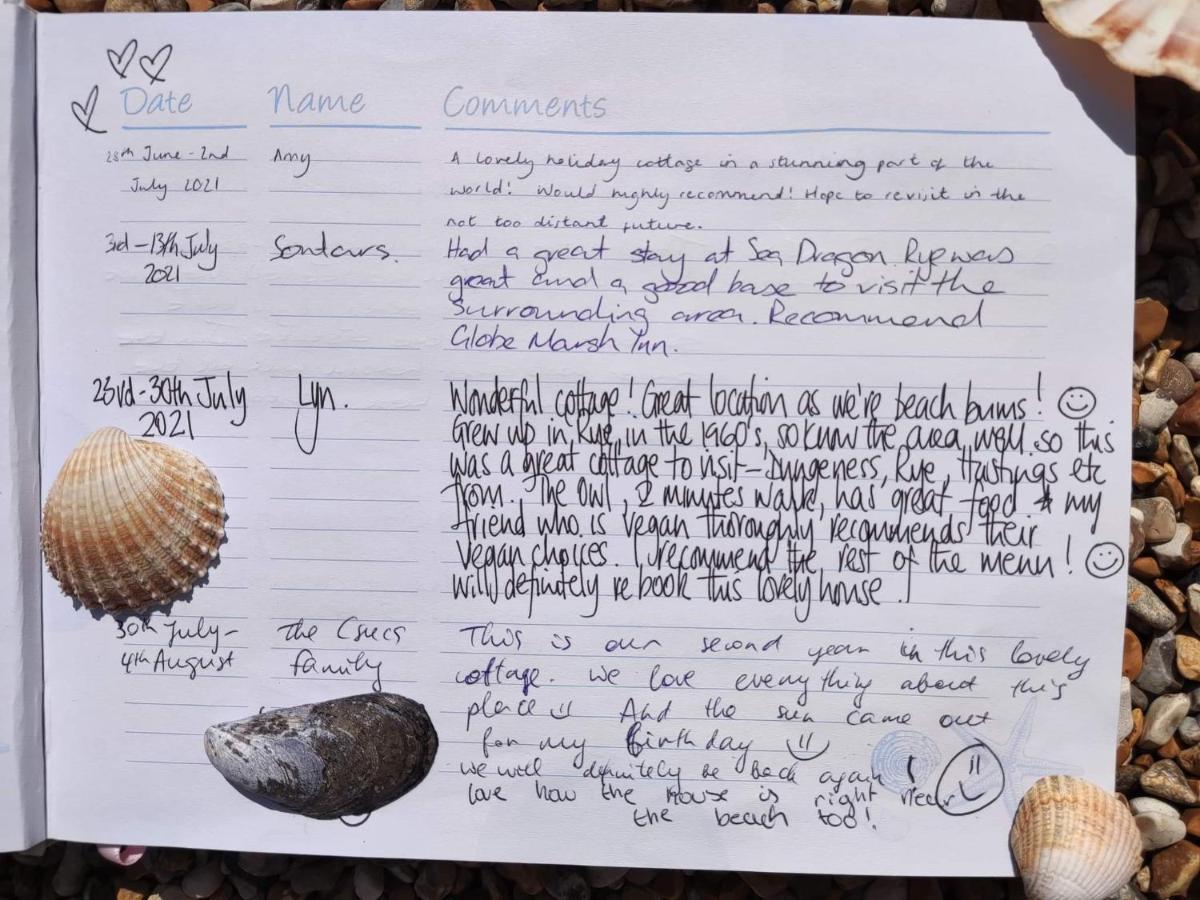 Date Name Comments
28th June - 2nd Amy A lovely holiday cottage in a stunning part of the
July 2021 world! Would highly recommend! Hope to revisit in the
not too distant future.
3rd - 13th July Sondars. Had a great stay at Sea Dragon, Rye was
2021 great and a good base to visit the
surrounding area. Recommend
Globe Marsh Inn.
23rd - 30th July Lyn. Wonderful cottage! Great location as we're beach bums!
2021 Grew up in Rye, in the 1960's, so know the area well so this
was a great cottage to visit - Dungeness, Rye, Hastings etc
from. The Owl, 2 minutes walk, has great food & my
friend who is vegan thoroughly recommends their
vegan choices. I recommend the rest of the menu!
Will definitely rebook this lovely house!
30th July - the family This is our second year in this lovely
4th August cottage. We love everything about this
place And the sun came out
for my birthday
we will definitely be back again!
love how the house is right near
the beach too!